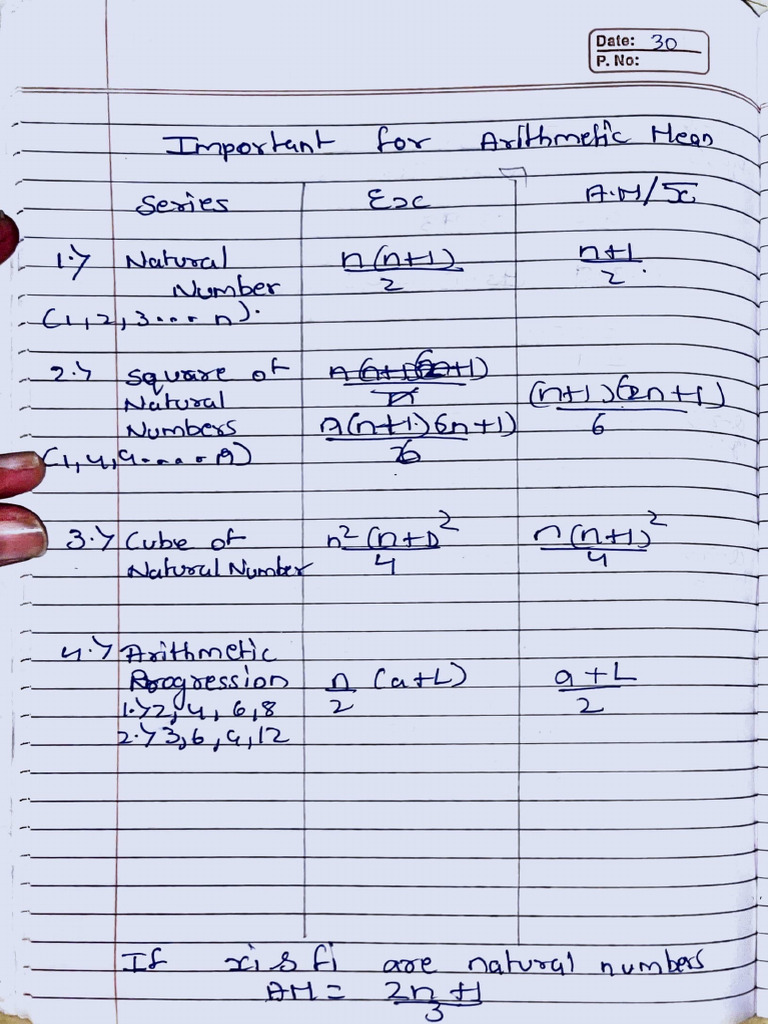 Date: 30
P. No:
Important for Arithmetic Mean
Series Σx A.M/x̄
1.> Natural Number n(n+1)/2 n+1/2.
(1,2,3... n).
2.> Square of Natural Numbers n(n+1)(6n+1)/6 (n+1)(2n+1)/6
(1,4,9.....
3.> Cube of Natural Number n²(n+1)²/4 n(n+1)²/4
4.> Arithmetic Progression n/2 (a+L) a+L/2
1.>2, 4, 6, 8
2.>3, 6, 9, 12
If xi & fi are natural numbers
AM = 2n+1/3